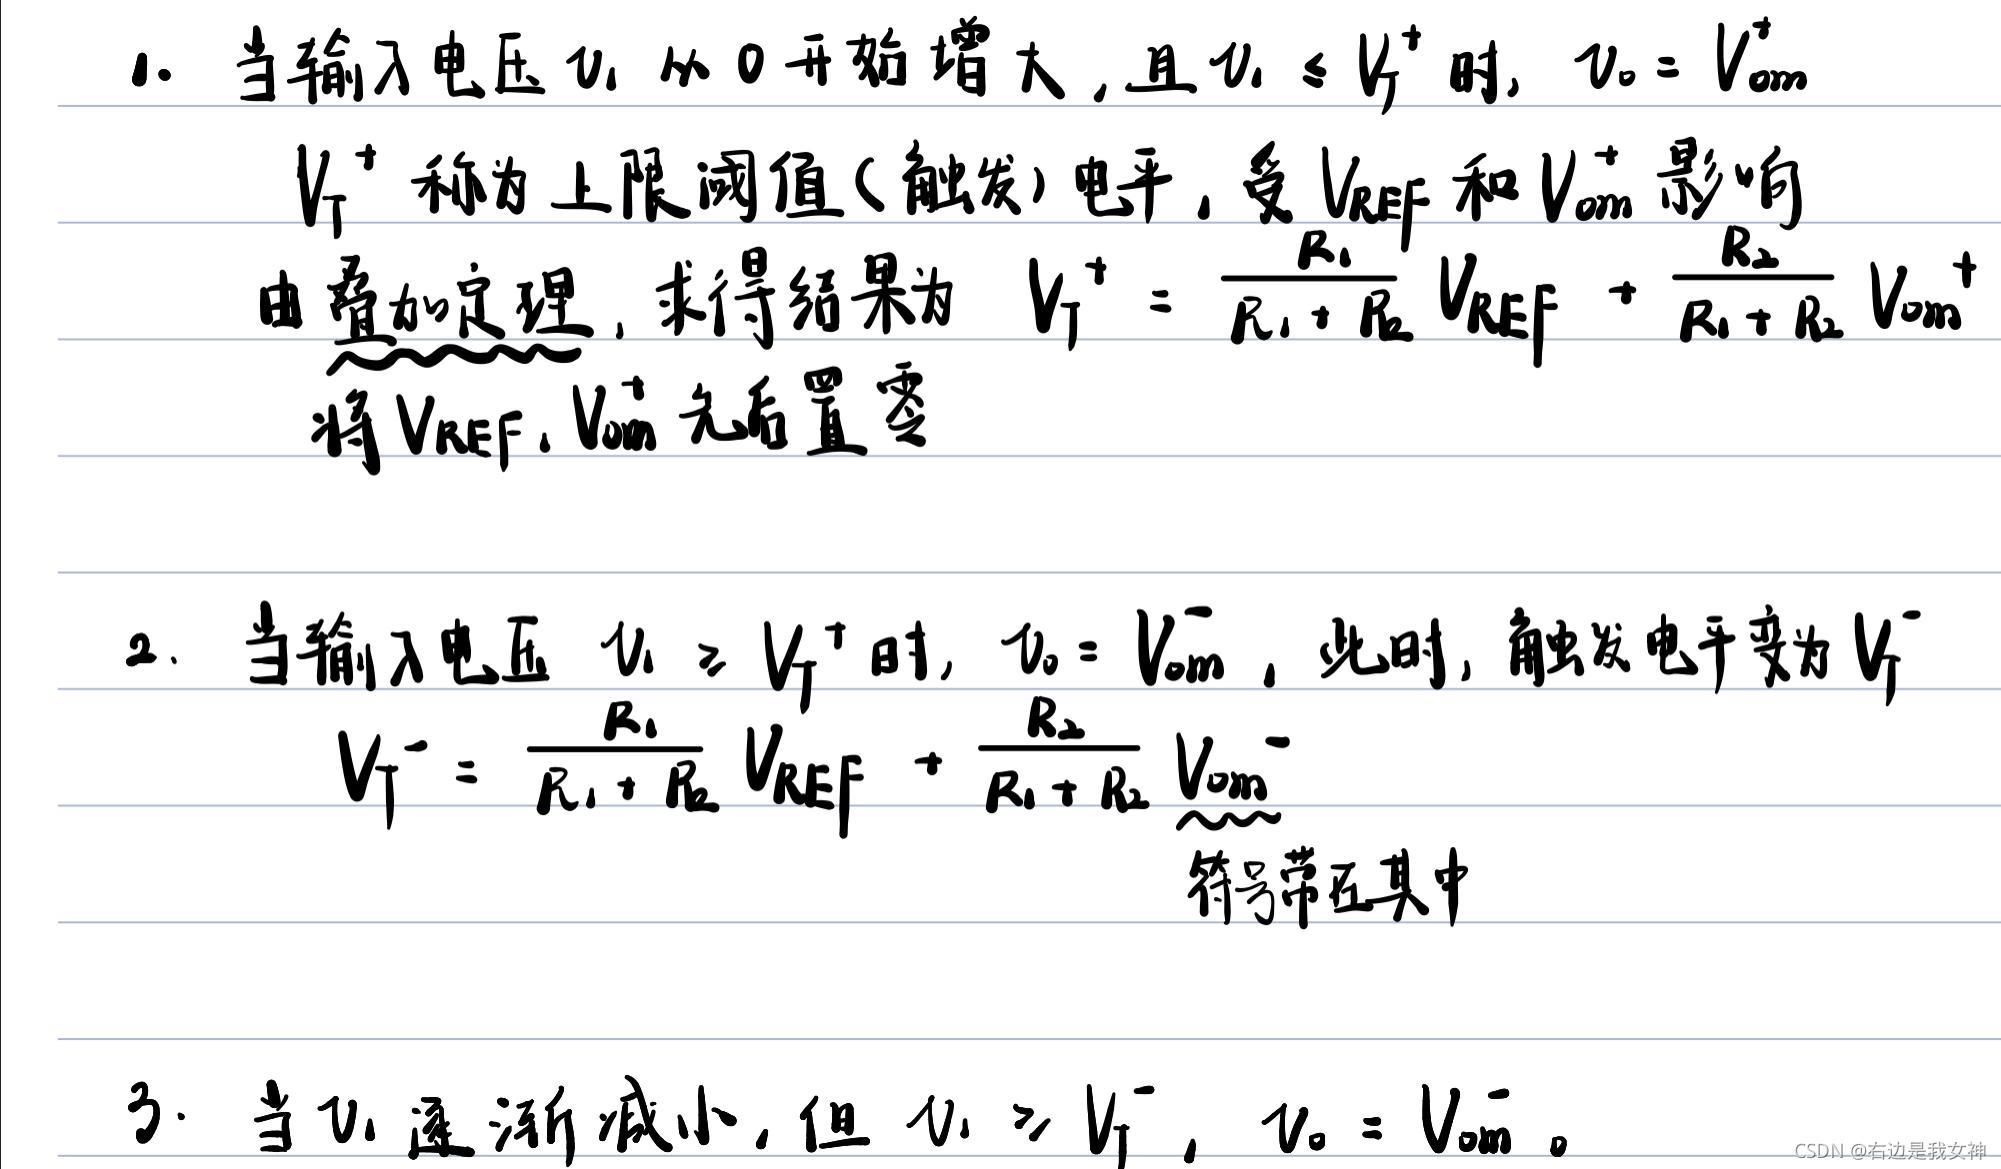 1. 当输入电压 v₁ 从 0 开始增大，且 v₁ ≤ V_T⁺ 时，v₀ = V_om⁺
V_T⁺ 称为上限阈值（触发）电平，受 V_REF 和 V_om⁺ 影响
由叠加定理，求得结果为 V_T⁺ = R₁/(R₁+R₂) V_REF + R₂/(R₁+R₂) V_om⁺
将 V_REF、V_om⁺ 先后置零
2. 当输入电压 v₁ ≥ V_T⁺ 时，v₀ = V_om⁻，此时，触发电平变为 V_T⁻
V_T⁻ = R₁/(R₁+R₂) V_REF + R₂/(R₁+R₂) V_om⁻
符号带在其中
3. 当 v₁ 逐渐减小，但 v₁ ≥ V_T⁻，v₀ = V_om⁻。
CSDN @右边是我女神